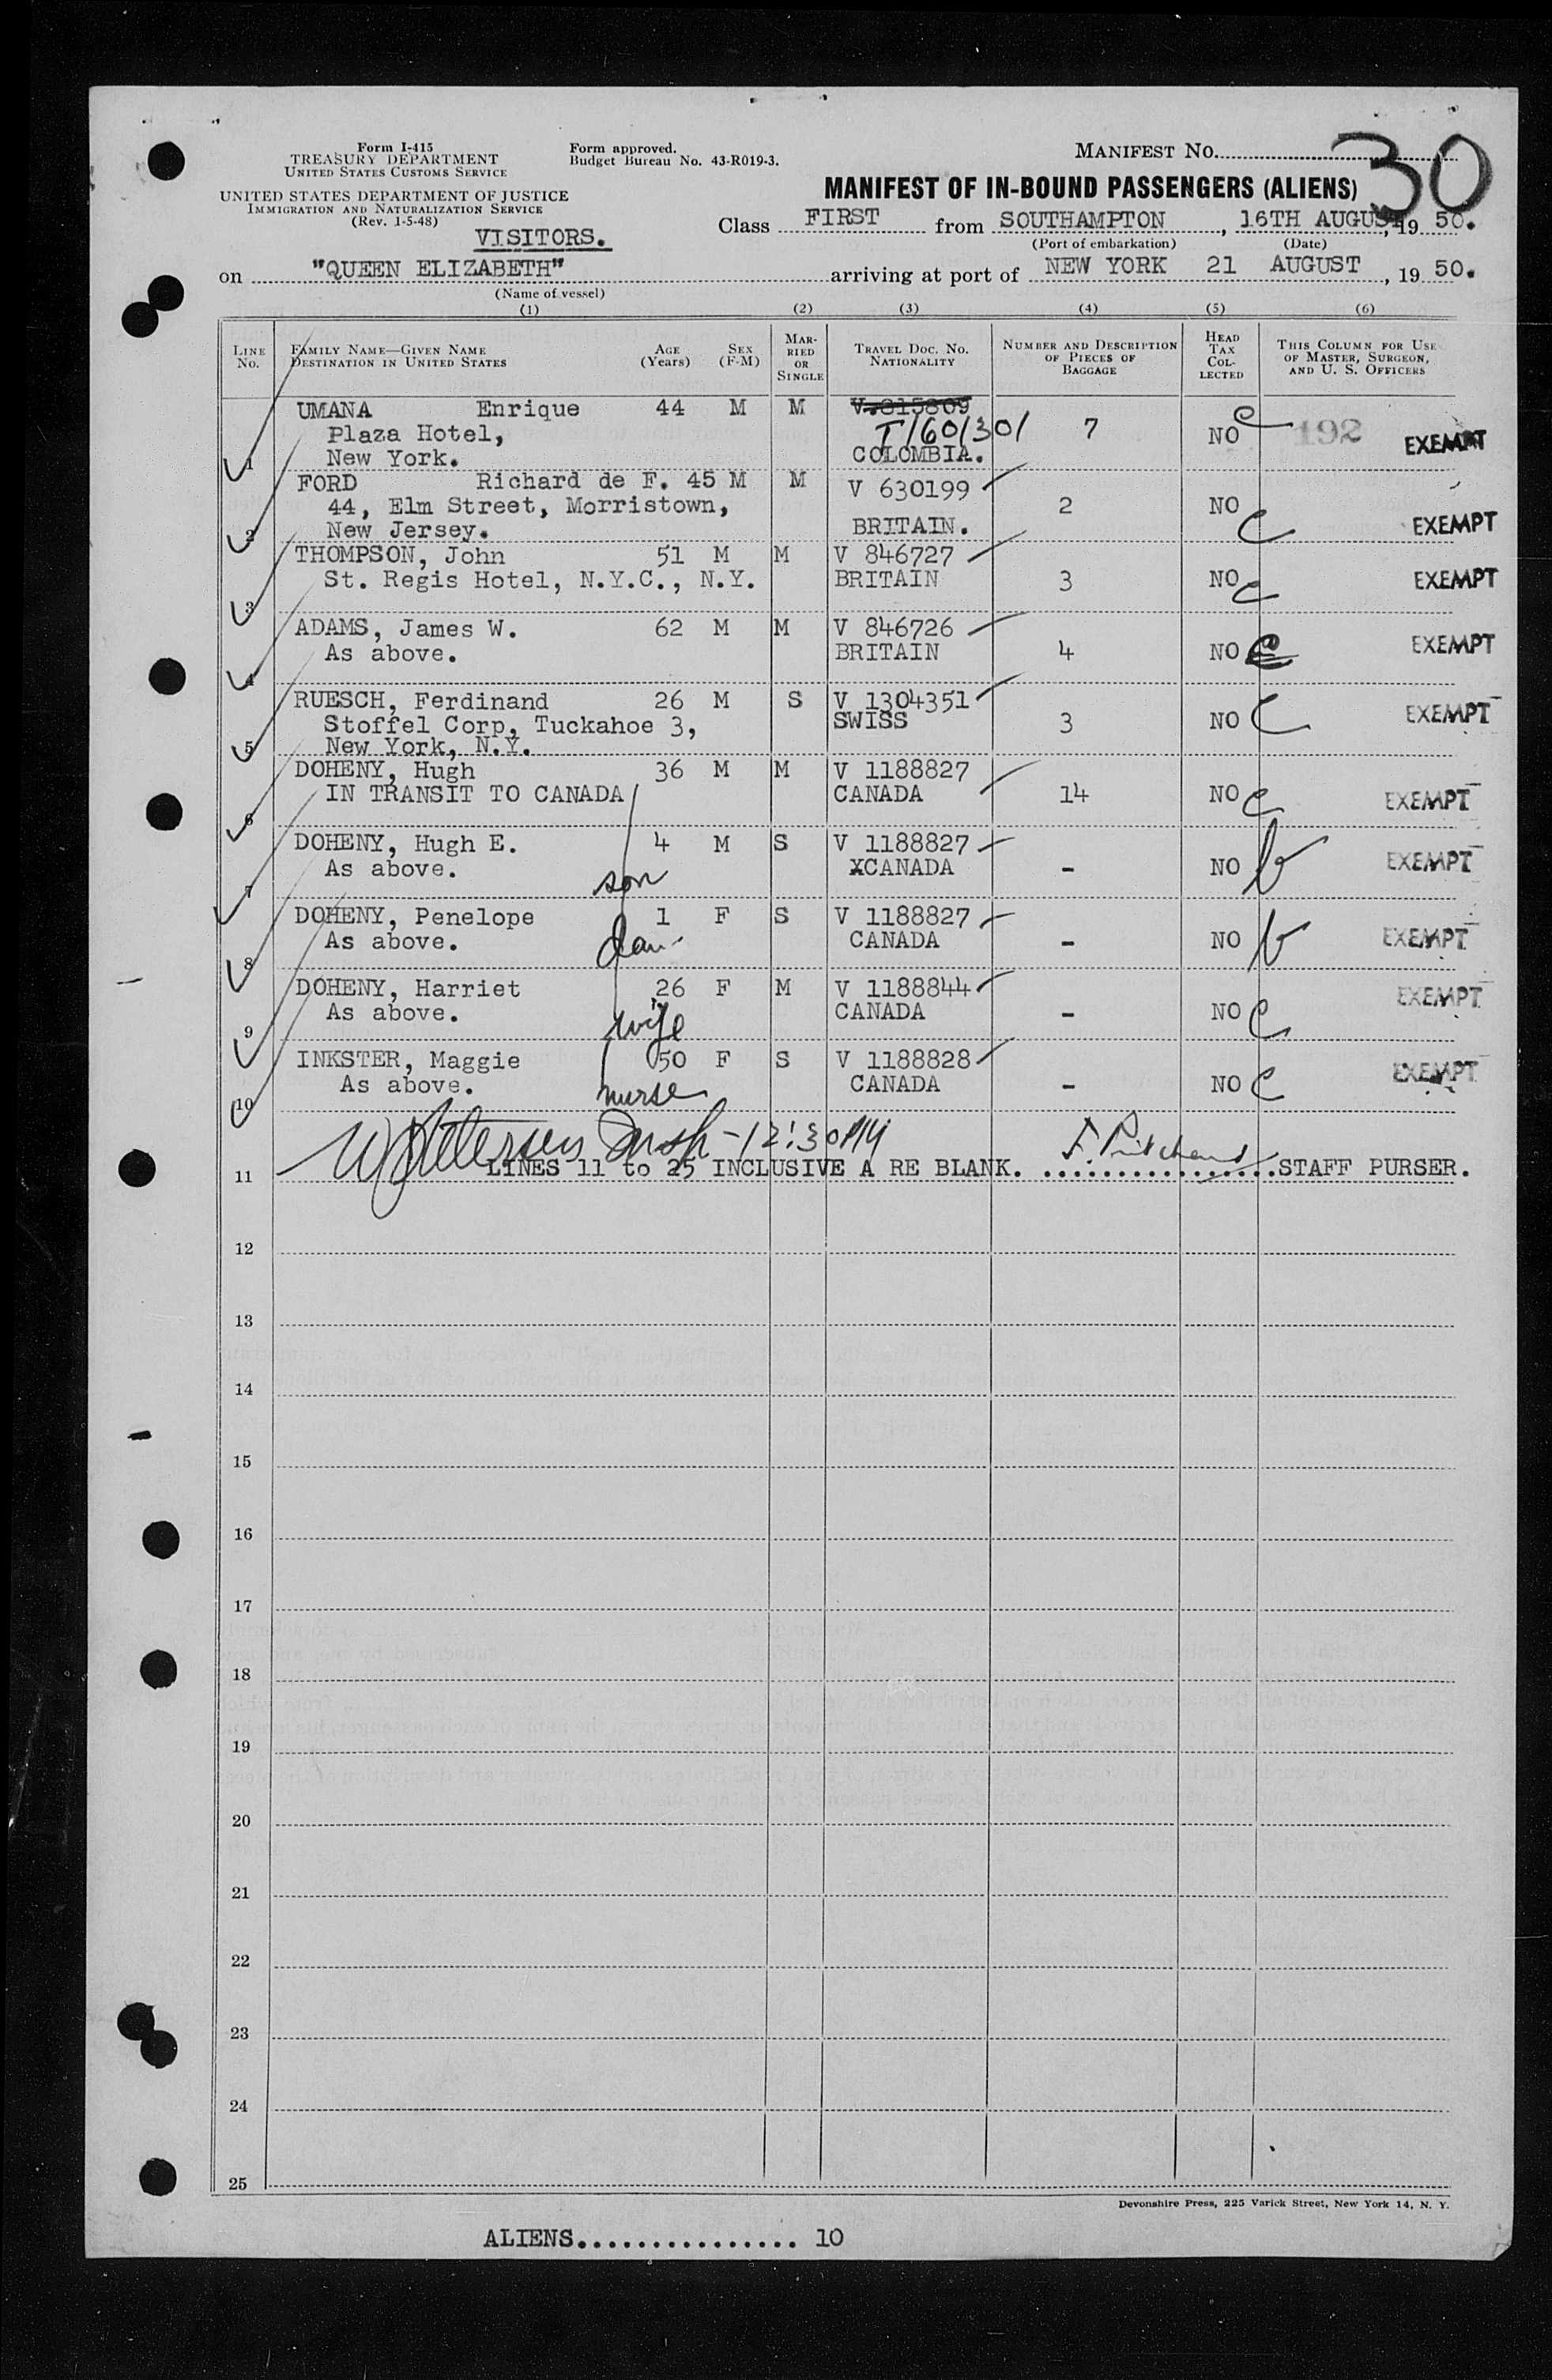 Form I-415
TREASURY DEPARTMENT
UNITED STATES CUSTOMS SERVICE
UNITED STATES DEPARTMENT OF JUSTICE
IMMIGRATION AND NATURALIZATION SERVICE
(Rev. 1-5-48)
Form approved.
Budget Bureau No. 43-R019-3.
MANIFEST NO. 30
MANIFEST OF IN-BOUND PASSENGERS (ALIENS)
VISITORS.
Class FIRST from SOUTHAMPTON, 16TH AUGUST, 19 50.
(Port of embarkation) (Date)
on "QUEEN ELIZABETH" arriving at port of NEW YORK 21 AUGUST, 19 50.
(Name of vessel)
(1) (2) (3) (4) (5) (6)
LINE NO. FAMILY NAME—GIVEN NAME DESTINATION IN UNITED STATES AGE (Years) SEX (F-M) MARRIED OR SINGLE TRAVEL DOC. NO. NATIONALITY NUMBER AND DESCRIPTION OF PIECES OF BAGGAGE HEAD TAX COLLECTED THIS COLUMN FOR USE OF MASTER, SURGEON, AND U. S. OFFICERS
UMANA Enrique 44 M M V.815809
Plaza Hotel, T/60/301 7 NO C 192 EXEMPT
1 New York. COLOMBIA.
FORD Richard de F. 45 M M V 630199
44, Elm Street, Morristown, 2 NO C EXEMPT
2 New Jersey. BRITAIN.
THOMPSON, John 51 M M V 846727
St. Regis Hotel, N.Y.C., N.Y. BRITAIN 3 NO C EXEMPT
3
ADAMS, James W. 62 M M V 846726
As above. BRITAIN 4 NO C EXEMPT
4
RUESCH, Ferdinand 26 M S V 1304351
Stoffel Corp, Tuckahoe 3, SWISS 3 NO C EXEMPT
5 New York, N.Y.
DOHENY, Hugh 36 M M V 1188827
IN TRANSIT TO CANADA CANADA 14 NO C EXEMPT
6
DOHENY, Hugh E. 4 M S V 1188827
As above. son XCANADA - NO b EXEMPT
7
DOHENY, Penelope 1 F S V 1188827
As above. dau. CANADA - NO b EXEMPT
8
DOHENY, Harriet 26 F M V 1188844
As above. wife CANADA - NO C EXEMPT
9
INKSTER, Maggie 50 F S V 1188828
As above. nurse CANADA - NO C EXEMPT
10
Insp - 12:30 PM F. Pritchard
11 LINES 11 to 25 INCLUSIVE A RE BLANK. ................STAFF PURSER.
12
13
14
15
16
17
18
19
20
21
22
23
24
25
Devonshire Press, 225 Varick Street, New York 14, N. Y.
ALIENS................ 10